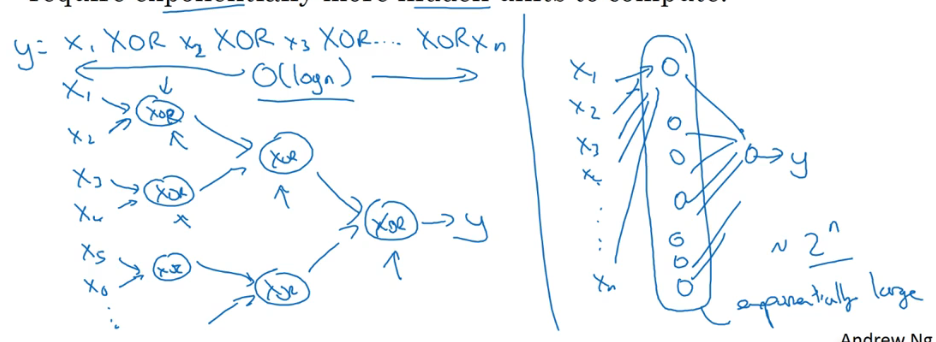 require exponentially more hidden units to compute.
y = x₁ XOR x₂ XOR x₃ XOR.... XOR xₙ
O(log n)
x₁
x₂
XOR
XOR
x₃
x₄
XOR
XOR → y
x₅
x₆
XOR
XOR
⋮
x₁
x₂
x₃
x₄
⋮
xₙ
→ y
~ 2ⁿ
exponentially large
Andrew Ng